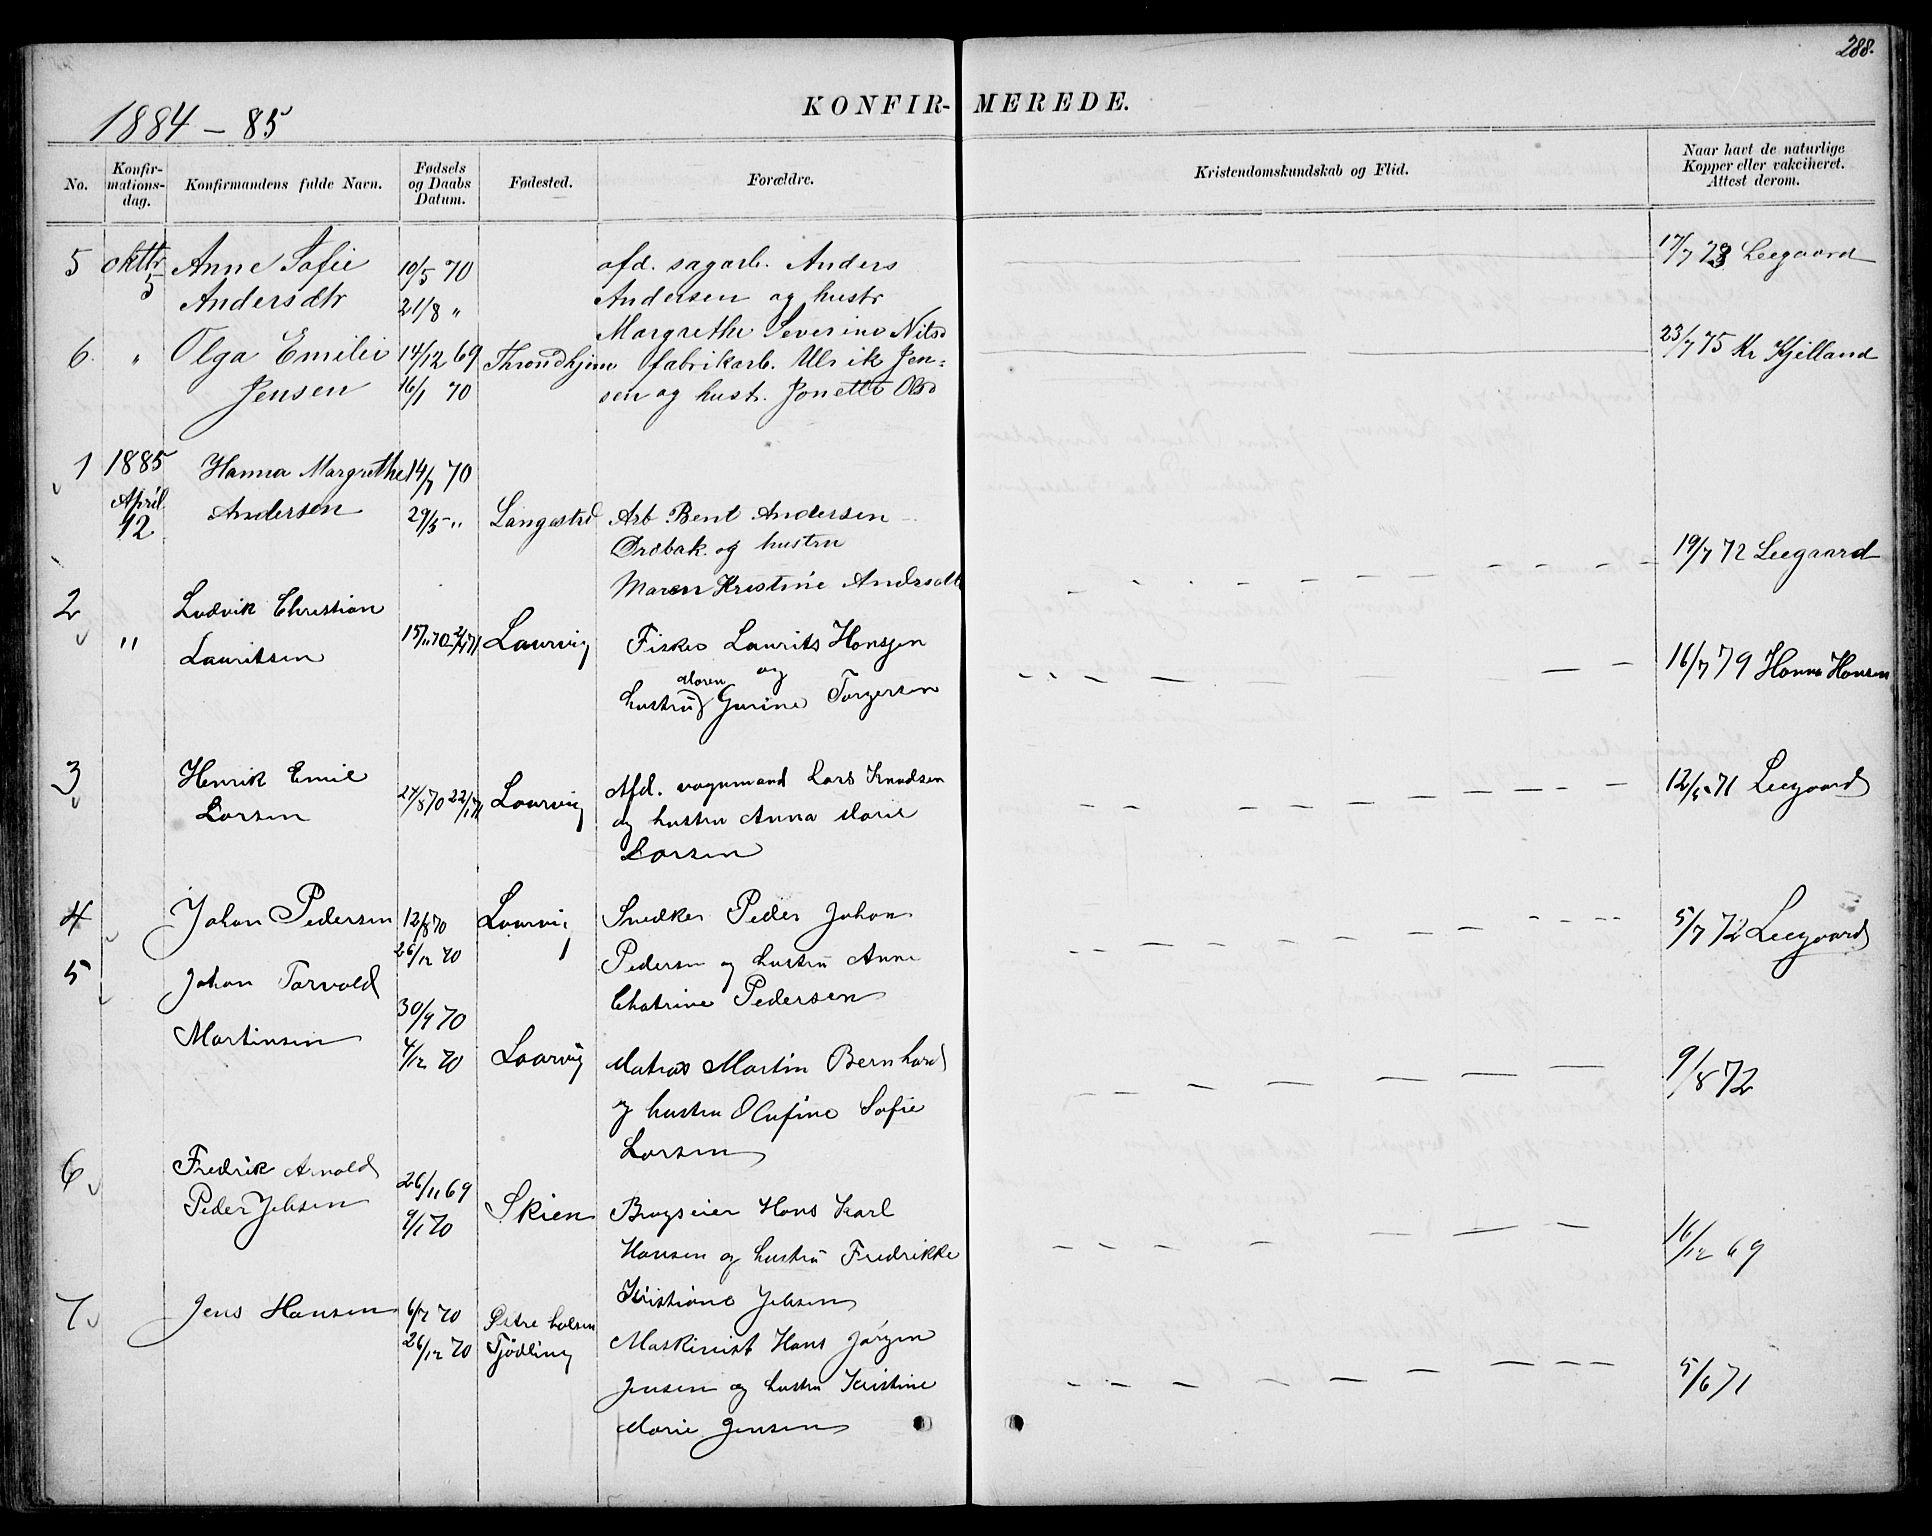 288.
1884 - 85
KONFIR- MEREDE.
No.
Konfir-
mations-
dag.
Konfirmandens fulde Navn.
Fødsels
og Daabs
Datum.
Fødested.
Forældre.
Kristendomskundskab og Flid.
Naar havt de naturlige
Kopper eller vakcineret.
Attest derom.
5 okttr Anne Sofie 10/5 70 afd. sagarb. Anders 17/7 73 Leegaard
5 Andersdtr 21/8 " Andersen og hustr
Margrethe Severine Nilsd
6. " Olga Emilie 14/12 69 Throndhjem fabrikarb. Ulrik Jen= 23/7 75 Kr Kjelland
Jensen 16/1 70 sen og hustr. Jonette Olsd
1 1885 Hanna Margrethe 14/1 70
April Andersen 29/5 - " Langestrd Arb. Bent Andersen
12 Ordbak. og hustru 19/7 72 Leegaard
Maren Kristine Andrsdtt
2 Ludvik Christian
" Lauritsen 15/11 70 2/4 71 Laurvig Fisker Laurits Hansen 16/7 79 Hanna Hansen
Maren og
hustru Gurine Torgersen
3 Henrik Emil 27/8 70 22/1 71 Laurvig Afd. vognmand Lars Knudsen 12/5 71 Leegaard
Larsen og hustru Anna Marie
Larsen
4 Johan Pedersen 12/8 70 Laurvig Snedker Peder Johan 5/7 72 Leegaard
26/12 70 Pedersen og hustru Anne
5 Johan Torvald 30/9 70 Chatrine Pedersen
Martinsen 4/12 70 Laurvig Matros Martin Bernhard 9/8 72
og hustru Olufine Sofie
Larsen
6 Fredrik Arnold 26/11 69
Peder Jebsen 9/1 70 Skien Brugseier Hans Karl 16/12 69
Hansen og hustru Fredrikke
Kristiane Jebsen
7 Jens Hansen 6/7 70 Østre halsen
26/12 70 Tjødling Maskinist Hans Jørgen
Jensen og hustru Kristine 5/6 71
Marie Jensen